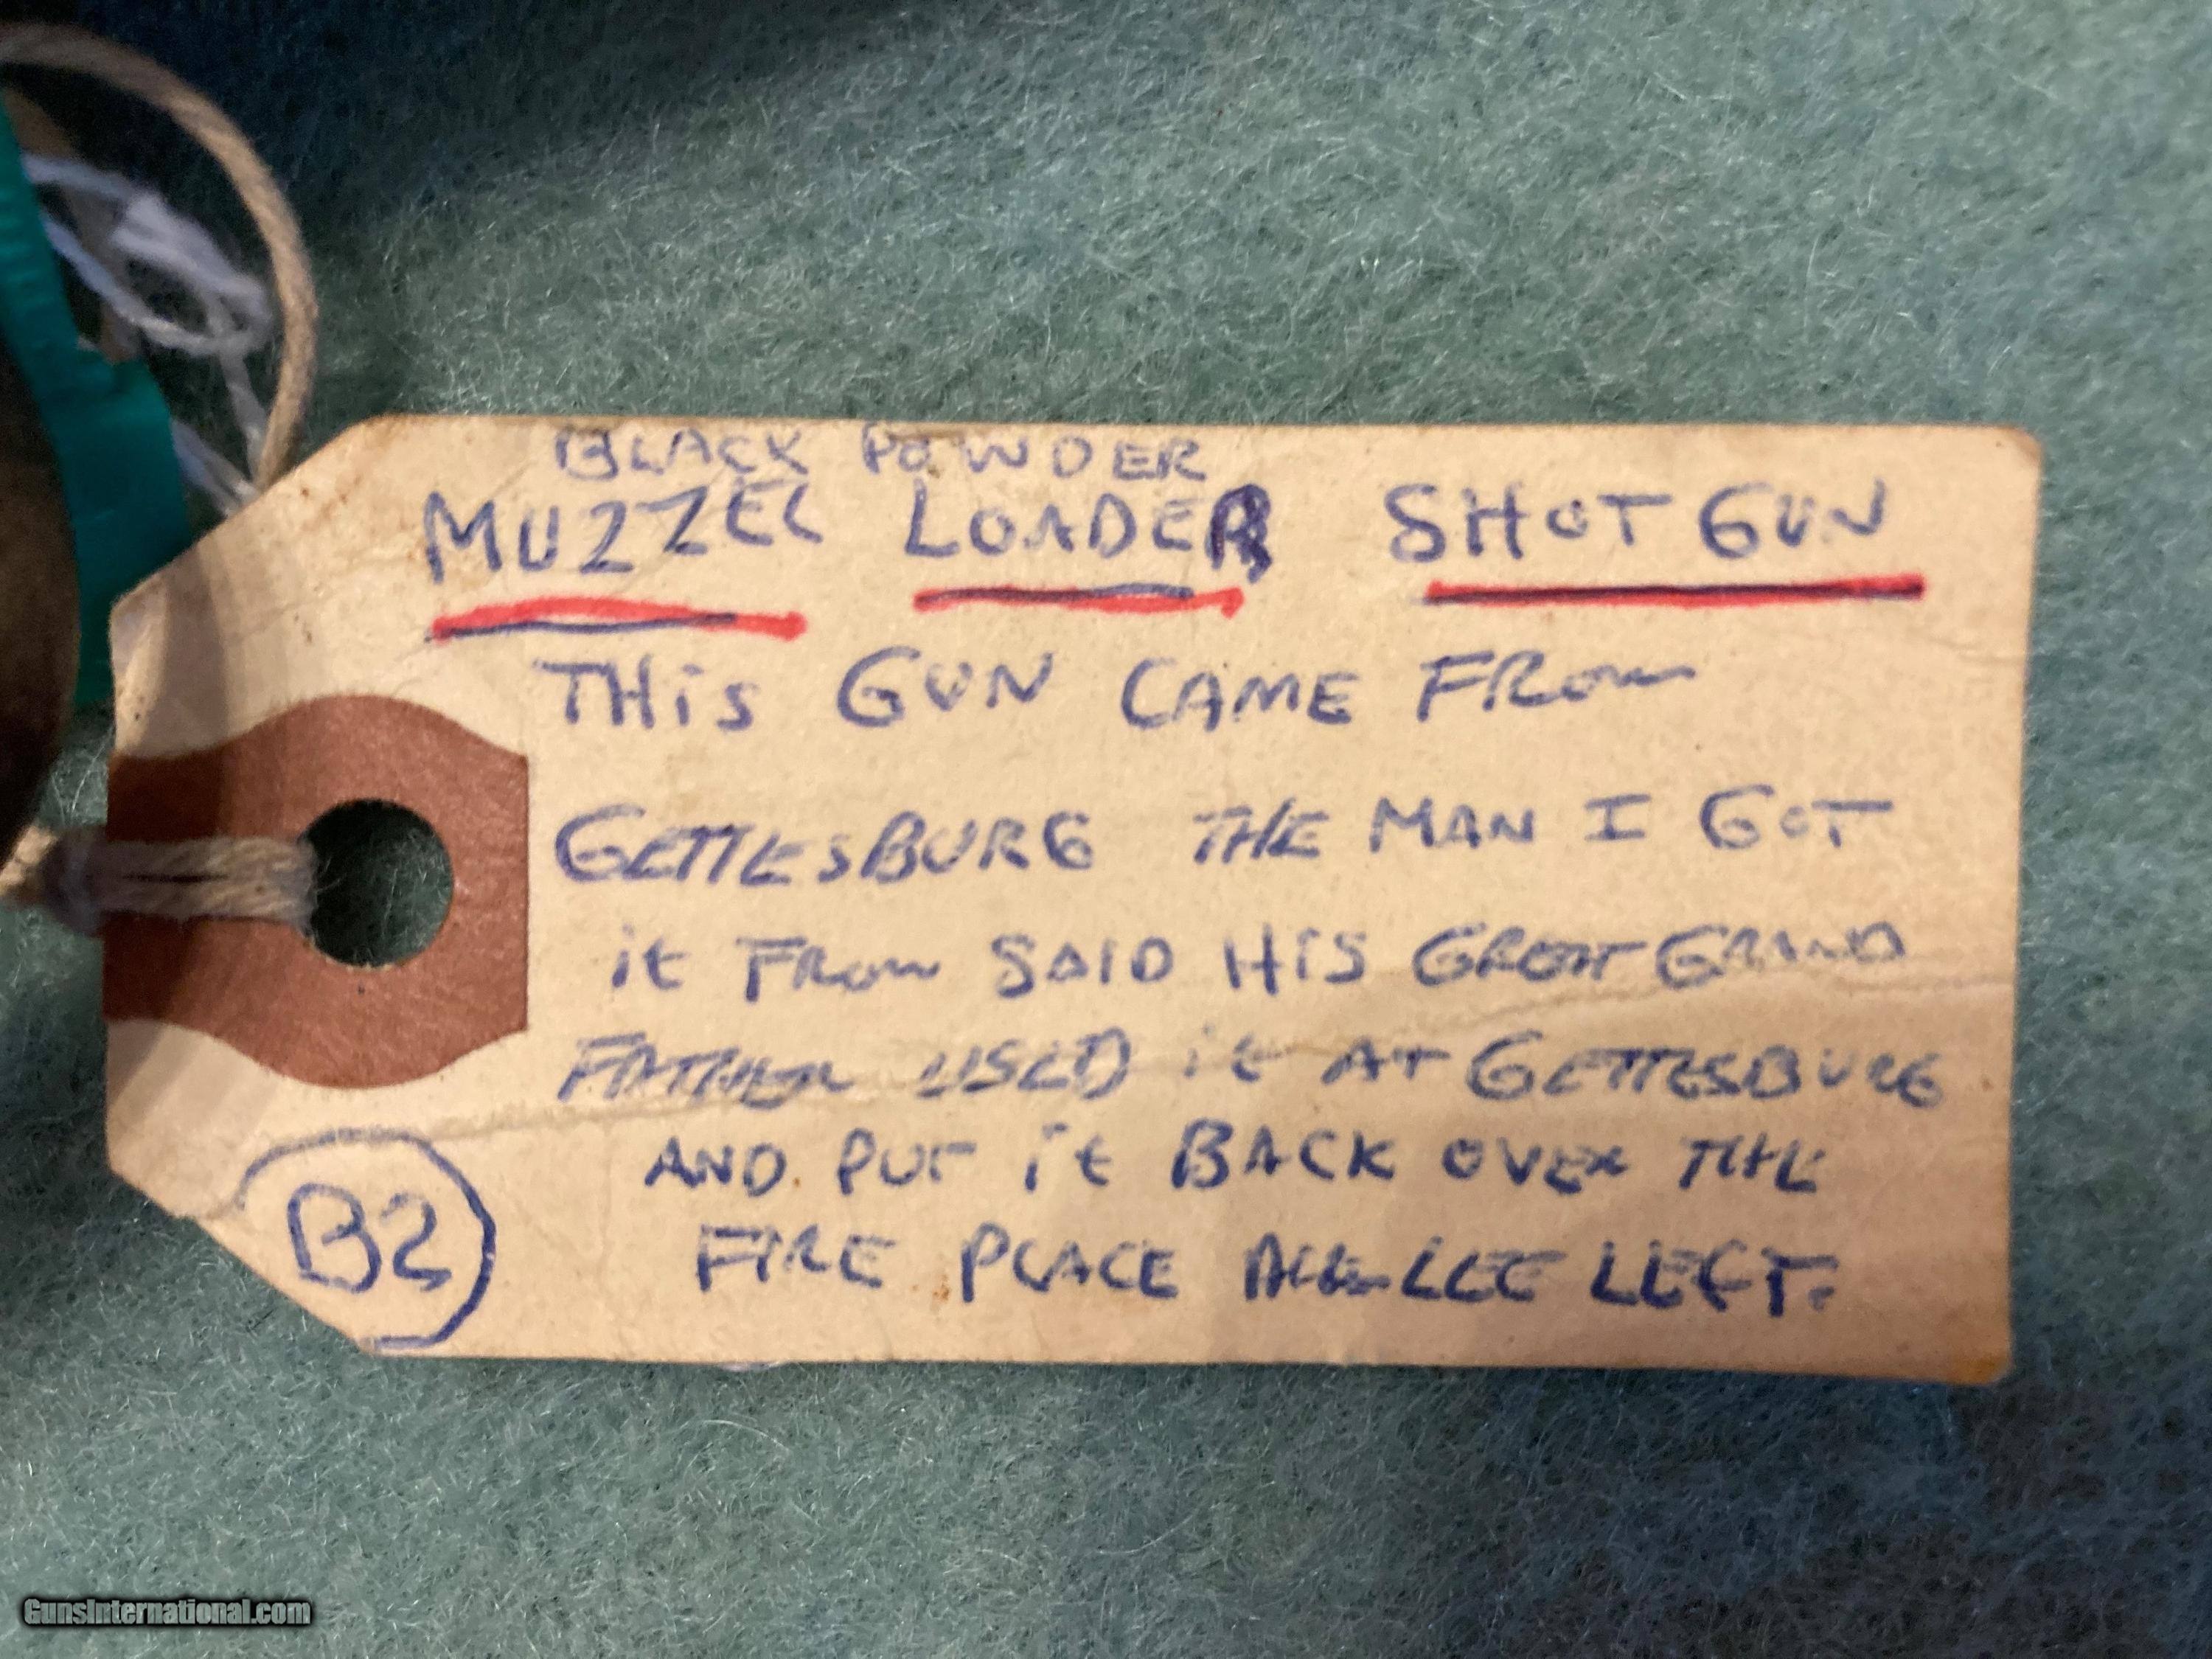 BLACK POWDER
MUZZEL LOADER SHOTGUN
THIS GUN CAME FROM
GETTESBURG THE MAN I GOT
it FROM SAID HIS GREAT GRAND
FATHER USED it AT GETTESBURG
AND PUT it BACK OVER THE
FIRE PLACE LEE LEFT.
B2
GunsInternational.com